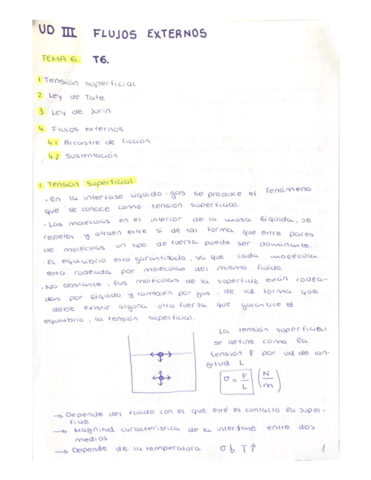 UD III FLUJOS EXTERNOS
TEMA 6. T6.
1. Tensión superficial
2. Ley de Tate
3. Ley de Jurin
4. Flujos externos
4.1 Arrastre de fricción
4.2 Sustentación
1. Tensión superficial
· En la interfase líquido-gas se produce el fenómeno
que se conoce como tensión superficial.
· Las moléculas en el interior de la masa líquida, se
repelen y atraen entre sí de tal forma que entre pares
de moléculas un tipo de fuerza puede ser dominante.
· El equilibrio está garantizado, ya que cada molécula
está rodeada por moléculas del mismo fluido.
· No obstante, las moléculas de la superficie están rodea-
das por líquido y también por gas, de tal forma que
debe existir alguna otra fuerza que garantice el
equilibrio, la tensión superficial.
La tensión superficial
se define como la
tensión F por ud de lon-
gitud L
σ = F/L (N/m)
→ Depende del fluido con el que esté en contacto la super-
ficie
→ Magnitud característica de la interfase entre dos
medios
→ Depende de la temperatura σ b T ↑
1